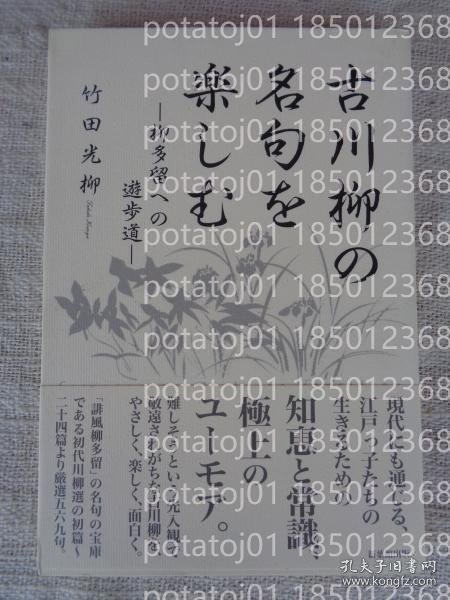 古川柳の
名句を
楽しむ
―柳多留への
遊歩道―
竹田光柳
現代にも通じる、
江戸っ子たちの
生きるための
知恵と常識、
極上の
ユーモア。
「難しそう」という先入観で
敬遠されがちな古川柳を
やさしく、楽しく、面白く。
「誹風柳多留」の名句の宝庫
である初代川柳選の初篇〜
二十四篇より厳選五六九句。
potatoj01 1850123685
孔夫子旧书网
www.kongfz.com